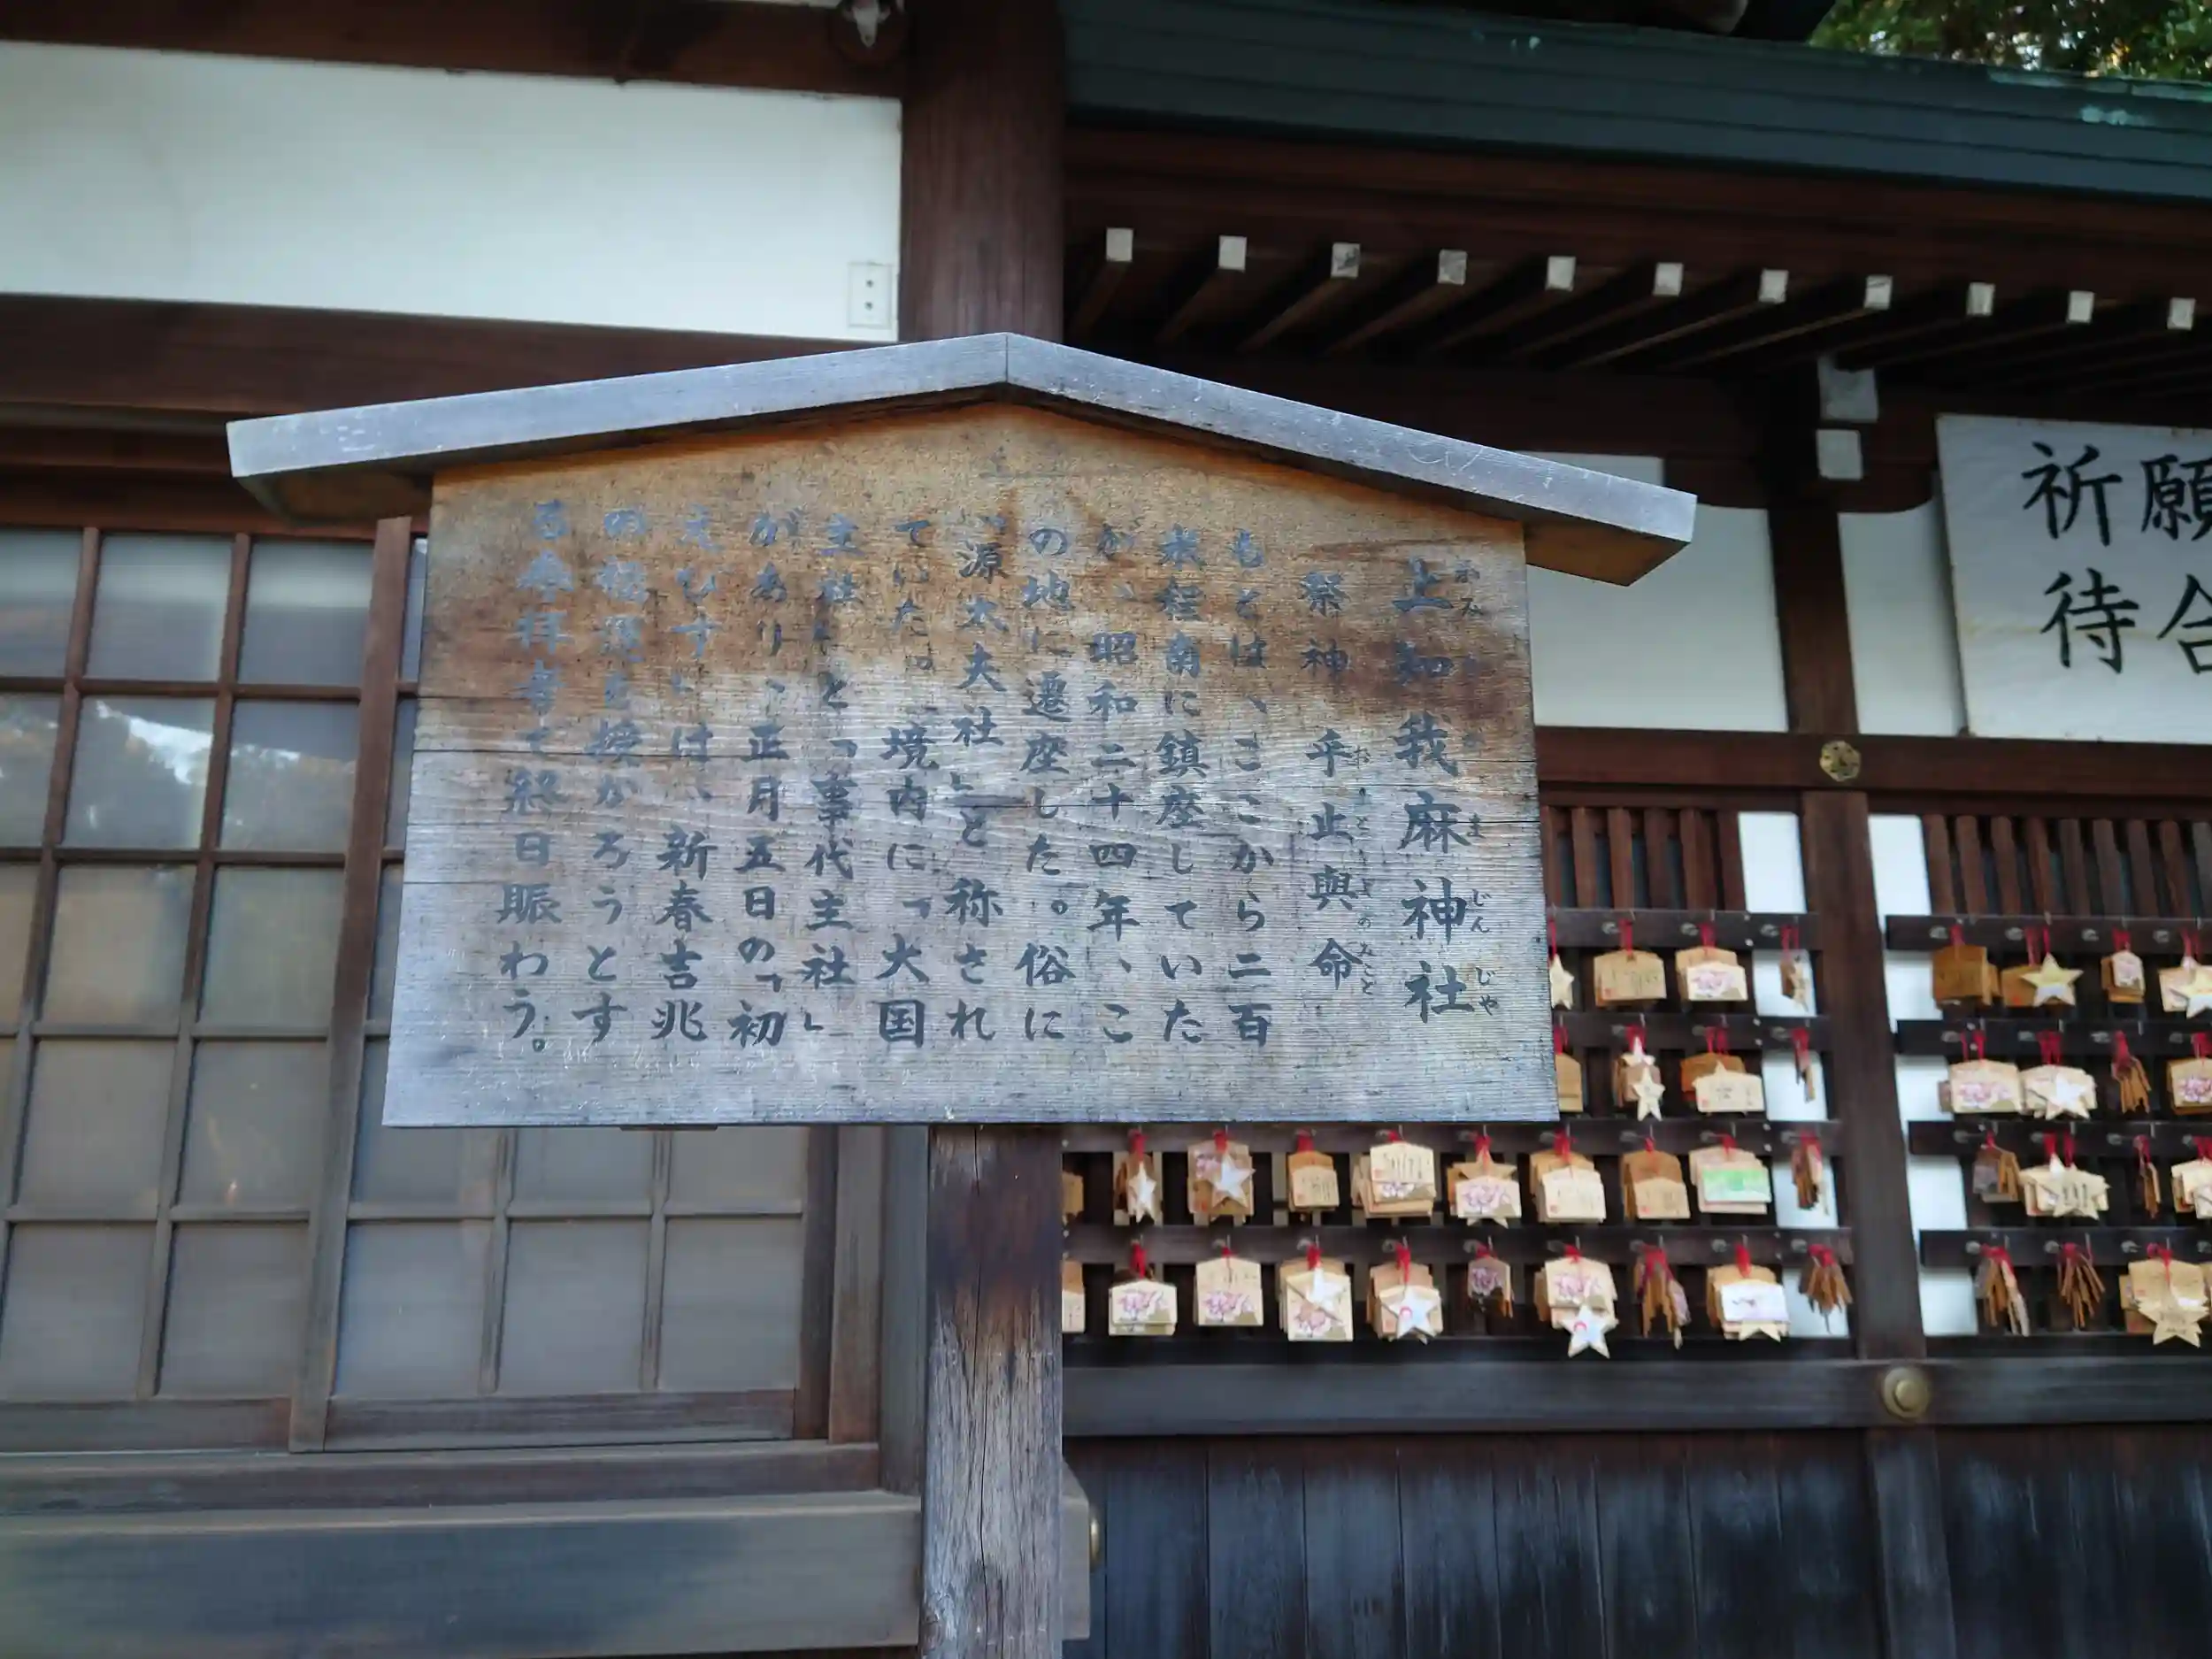 上知我麻神社
かみ ち か ま じん じや
祭神 乎止與命
お と よ の みこと
もとは、ここから二百
米程南に鎮座していた
が、昭和二十四年、こ
の地に遷座した。俗に
「源太夫社」と称され
ていた。境内に「大国
主社」と「事代主社」
があり、正月五日の「初
えびす」は、新春吉兆
の福運を授かろうとす
る参拝者で終日賑わう。
祈願
待合